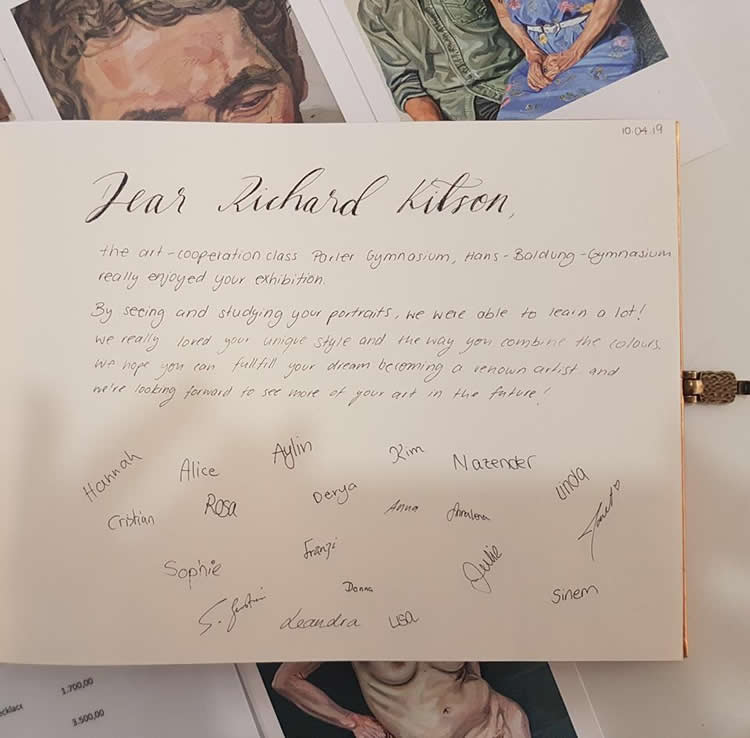 10.04.19
Dear Richard Kitson,
the art-cooperation class Parler Gymnasium, Hans-Baldung-Gymnasium
really enjoyed your exhibition.
By seeing and studying your portraits, we were able to learn a lot!
we really loved your unique style and the way you combine the colours.
We hope you can fullfill your dream becoming a renown artist and
we're looking forward to see more of your art in the future!
Hannah Alice Aylin Kim Nazender Linda
Cristian Rosa Derya Anna Annalena
Sophie Franzi Julie
Donna Sinem
S. Leandra Lisa
1.700,00
3.500,00